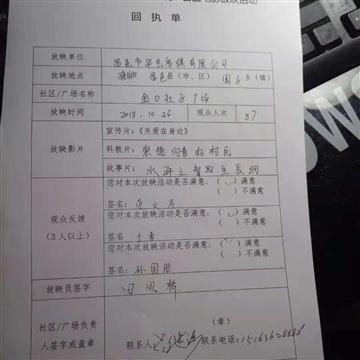 回执单
放映单位 昌邑市华艺传媒有限公司
放映地点 潍坊 昌邑县(市、区) 围子乡(镇)
社区/广场名称 金口社区广场
放映时间 2018.10.26 观众人次 87
放映影片
宣传片:《关爱在身边》
科教片:崇德向善好村民
故事片:水浒之智取生辰纲
观众反馈
(3人以上)
您对本次放映活动是否满意:(✓)满意
( )不满意
签名:范文彦
您对本次放映活动是否满意:(✓)满意
( )不满意
签名:于青
您对本次放映活动是否满意:(✓)满意
( )不满意
签名:孙国胜
放映员签字
社区/广场负责
人签字或盖章
(章)
联系人: 联系电话: